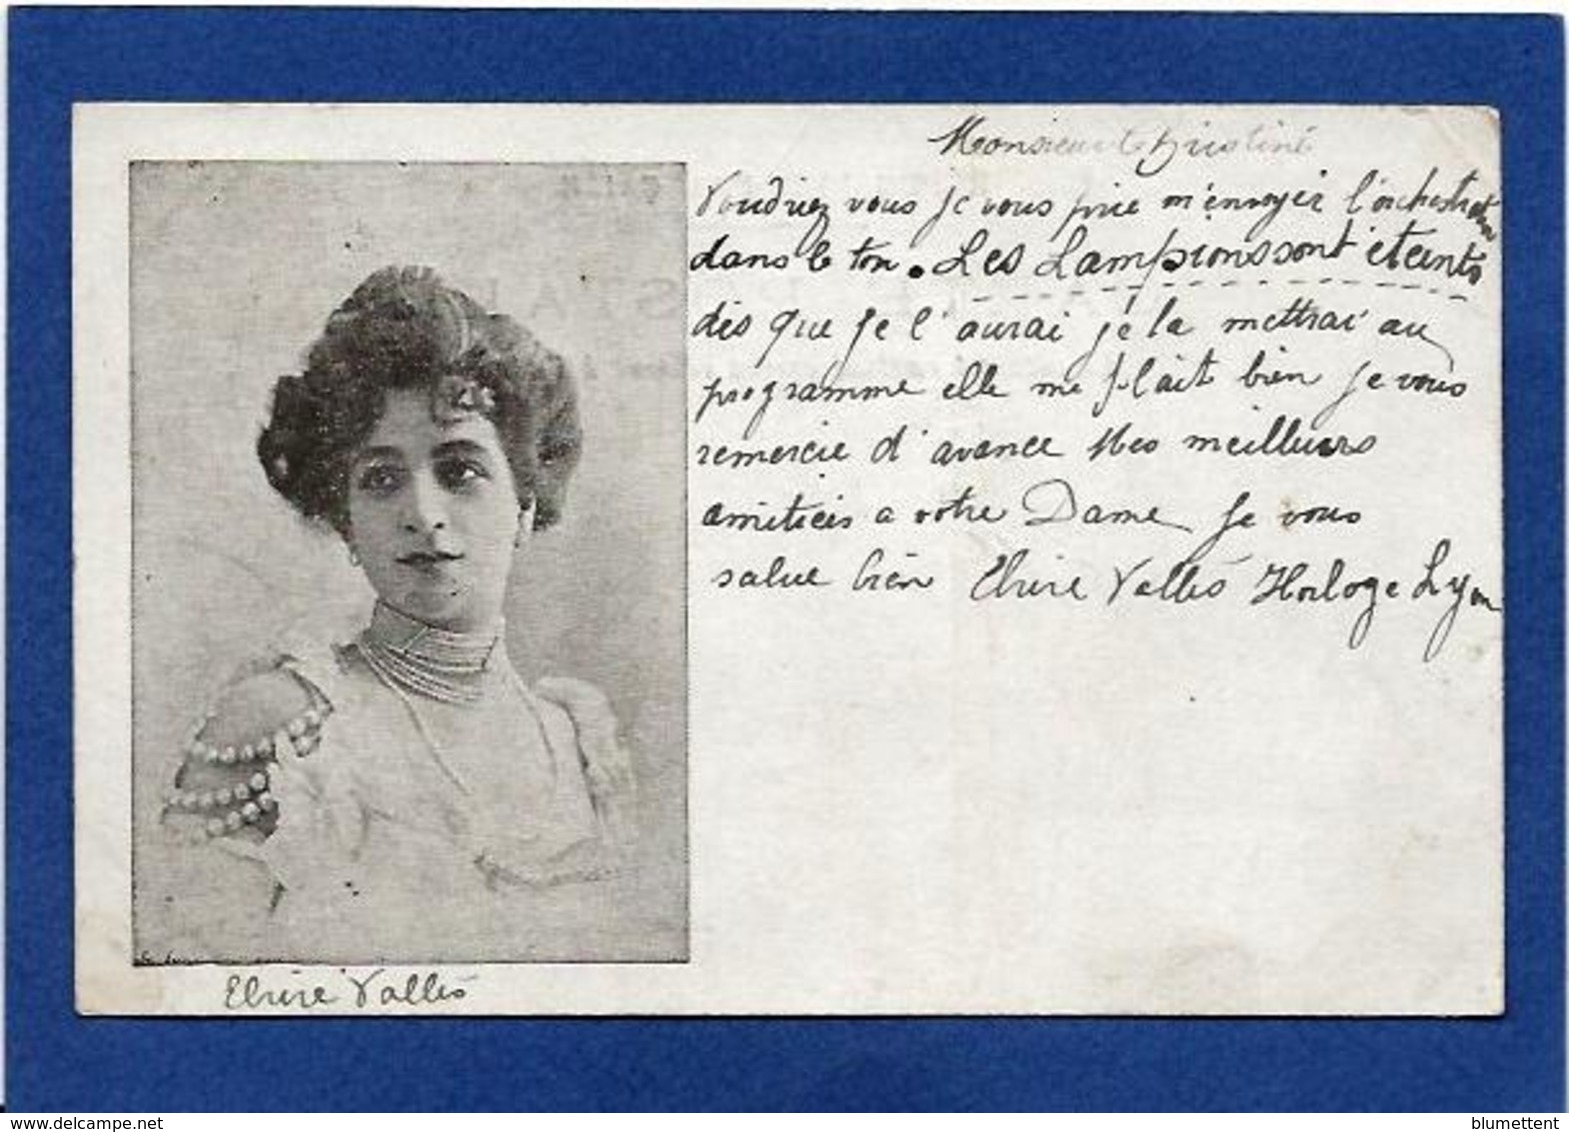 Monsieur Christiné
Voudriez vous je vous prie m'envoyer l'orchestration
dans le ton. Les Lampions sont éteints
dès que je l'aurai je la mettrai au
programme elle me plait bien je vous
remercie d'avance Mes meilleurs
amitiés a votre Dame Je vous
salue bien Elvire Vallès Horloge Lyon
Elvire Vallès
www.delcampe.net
blumettent